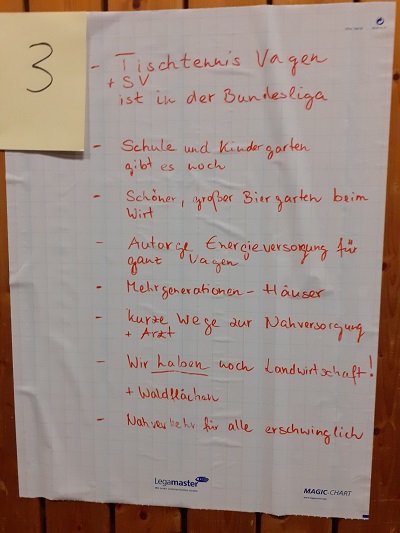 3
- Tischtennis Vagen
+ SV
ist in der Bundesliga
- Schule und Kindergarten
gibt es noch
- Schöner, großer Biergarten beim
Wirt
- Autarge Energieversorgung für
ganz Vagen
- Mehrgenerationen-Häuser
- kurze Wege zur Nahversorgung
+ Arzt
- Wir haben noch Landwirtschaft!
+ Waldflächen
- Nahverkehr für alle erschwinglich
Legamaster
MAGIC-CHART